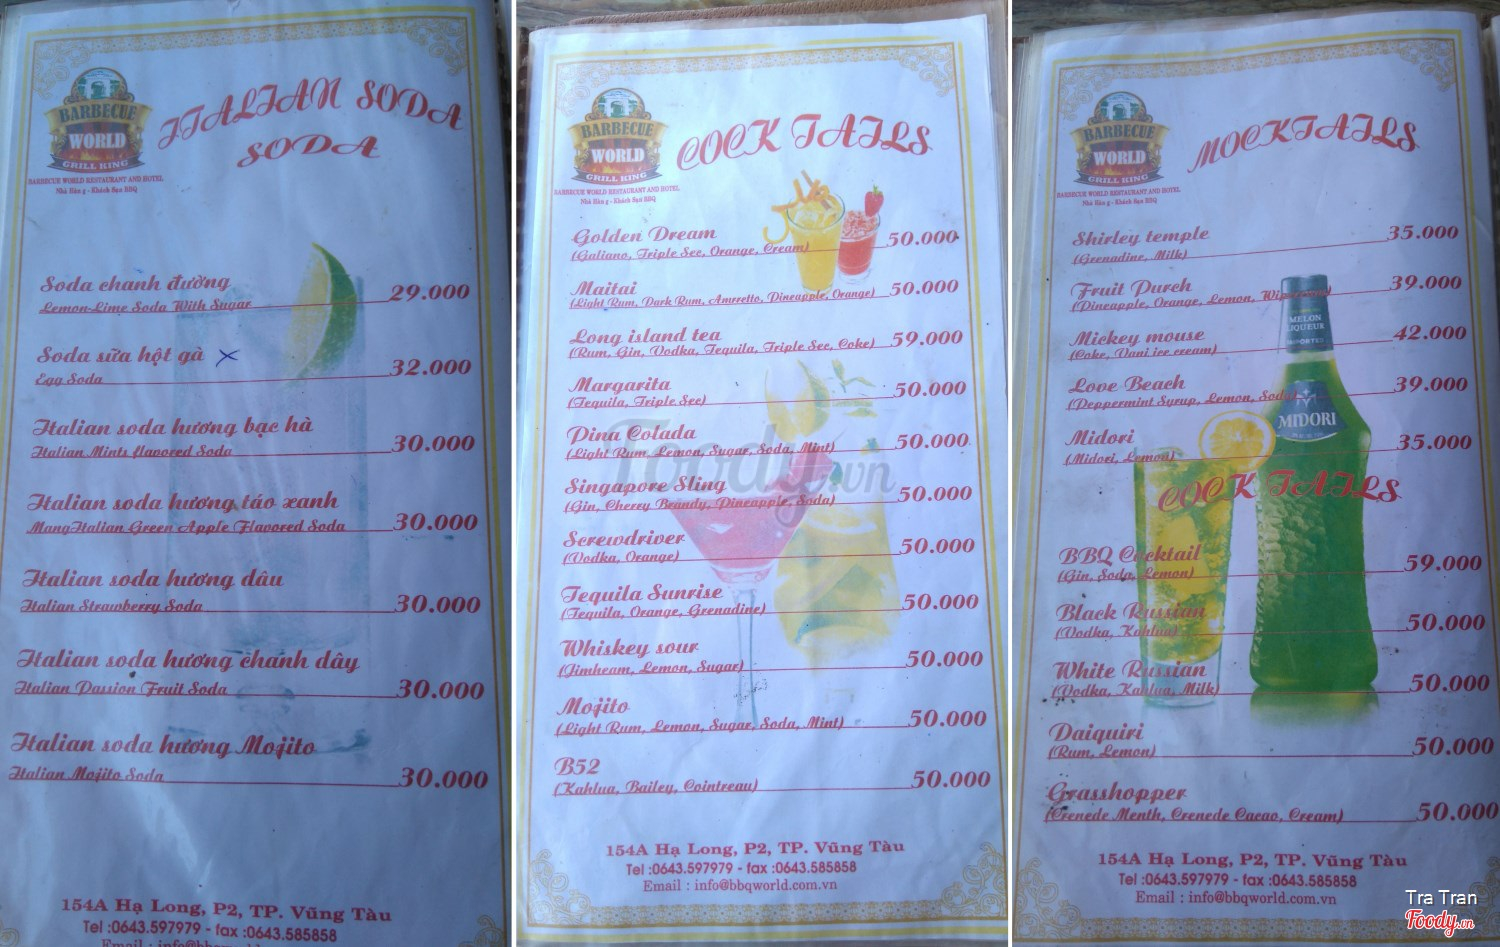 BARBECUE
WORLD
GRILL KING
BARBECUE WORLD RESTAURANT AND HOTEL
Nhà Hàn g - Khách Sạn BBQ
ITALIAN SODA
SODA
Soda chanh đường
Lemon-Lime Soda With Sugar 29.000
Soda sữa hột gà
Egg Soda 32.000
Italian soda hương bạc hà
Italian Mints flavored Soda 30.000
Italian soda hương táo xanh
MangItalian Green Apple Flavored Soda 30.000
Italian soda hương dâu
Italian Strawberry Soda 30.000
Italian soda hương chanh dây
Italian Passion Fruit Soda 30.000
Italian soda hương Mojito
Italian Mojito Soda 30.000
154A Hạ Long, P2, TP. Vũng Tàu
Tel :0643.597979 - fax :0643.585858
BARBECUE
WORLD
GRILL KING
BARBECUE WORLD RESTAURANT AND HOTEL
Nhà Hàn g - Khách Sạn BBQ
COCK TAILS
Golden Dream
(Galiano, Triple Sec, Orange, Cream) 50.000
Maitai
(Light Rum, Dark Rum, Amrretto, Pineapple, Orange) 50.000
Long island tea
(Rum, Gin, Vodka, Tequila, Triple Sec, Coke) 59.000
Margarita
(Tequila, Triple Sec) 50.000
Pina Colada
(Light Rum, Lemon, Sugar, Soda, Mint) 50.000
Singapore Sling
(Gin, Cherry Brandy, Pineapple, Soda) 50.000
Screwdriver
(Vodka, Orange) 50.000
Tequila Sunrise
(Tequila, Orange, Grenadine) 50.000
Whiskey sour
(Jimbeam, Lemon, Sugar) 50.000
Mojito
(Light Rum, Lemon, Sugar, Soda, Mint) 50.000
B52
(Kahlua, Bailey, Cointreau) 50.000
154A Hạ Long, P2, TP. Vũng Tàu
Tel :0643.597979 - fax :0643.585858
Email : info@bbqworld.com.vn
Foody.vn
BARBECUE
WORLD
GRILL KING
BARBECUE WORLD RESTAURANT AND HOTEL
Nhà Hàn g - Khách Sạn BBQ
MOCKTAILS
Shirley temple
(Grenadine, Milk) 35.000
Fruit Purch
(Pineapple, Orange, Lemon, 39.000
Mickey mouse
(Coke, Vani ice cream) 42.000
Love Beach
(Peppermint Syrup, Lemon, Soda) 39.000
Midori
(Midori, Lemon) 35.000
MELON
LIQUEUR
IMPORTED
MIDORI
COCK TAILS
BBQ Cocktail
(Gin, Soda, Lemon) 59.000
Black Russian
(Vodka, Kahlua) 50.000
White Russian
(Vodka, Kahlua, Milk) 50.000
Daiquiri
(Rum, Lemon) 50.000
Grasshopper
(Crenede Menth, Crenede Cacao, Cream) 50.000
154A Hạ Long, P2, TP. Vũng Tàu
Tel :0643.597979 - fax :0643.585858
Email : info@bbqworld.com.vn
Tra Tran
Foody.vn